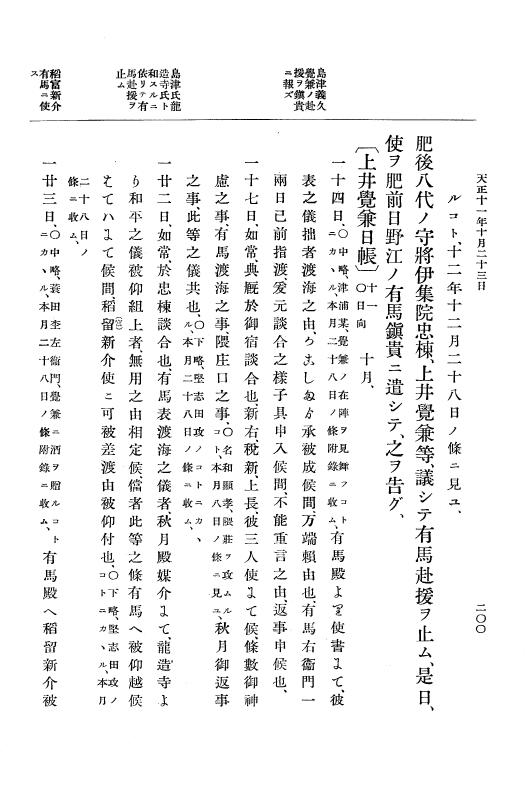 天正十一年十月二十三日
二〇〇
ルコト、十二年十二月二十八日ノ條ニ見ユ、
肥後八代ノ守將伊集院忠棟、上井覺兼等、議シテ有馬赴援ヲ止ム、是日、
使ヲ肥前日野江ノ有馬鎭貴ニ遣シテ、之ヲ告グ、
島津義久
覺兼ノ赴
援ヲ鎭貴
ニ報ズ
〔上井覺兼日帳〕十一〇日向 十月、
一十四日、〇中略、津浦某、覺兼ノ在陣ヲ見舞フコトニカヽル、本月二十八日ノ條ニ收ム、有馬殿よ里使書まて、彼
表之儀拙者渡海之由、うれしゐ方承被成候間、万端賴由也、有馬右衞門一
兩日已前指渡、爰元談合之樣子具申入候間、不能重言之由、返事申候也、
一十七日、如常、典厩於御宿談合也、新右、稅新、上長、彼三人使まて候、條數御神
慮之事、有馬渡海之事、隈庄口之事、〇名和顯孝、隈莊ヲ攻ムルコト、本月八日ノ條ニ見ユ、秋月御返事
之事、此等之儀共也、〇下略、堅志田攻ノコトニカヽル、本月二十八日ノ條ニ收ム、
島津氏龍
造寺氏ト
和スルニ
依リテ有
馬赴援ヲ
止ム
一廿二日、如常、於忠棟談合也、有馬表渡海之儀者、秋月殿媒介まて、龍造寺よ
り和平之儀被仰組上者、無用之由相定候、僃者此等之條有馬へ被仰越候
とてハまて候間、稻留新介使ニ可被差渡由被仰付也、〇下略、堅志田攻ノコトニカヽル、本月
二十八日ノ
條ニ收ム、
稻富新介
有馬ニ使
ス
一廿三日、〇中略、蓑田杢左衞門、覺兼ニ酒ヲ贈ルコトニカヽル、本月二十八日ノ條附錄ニ收ム、有馬殿へ稻留新介被